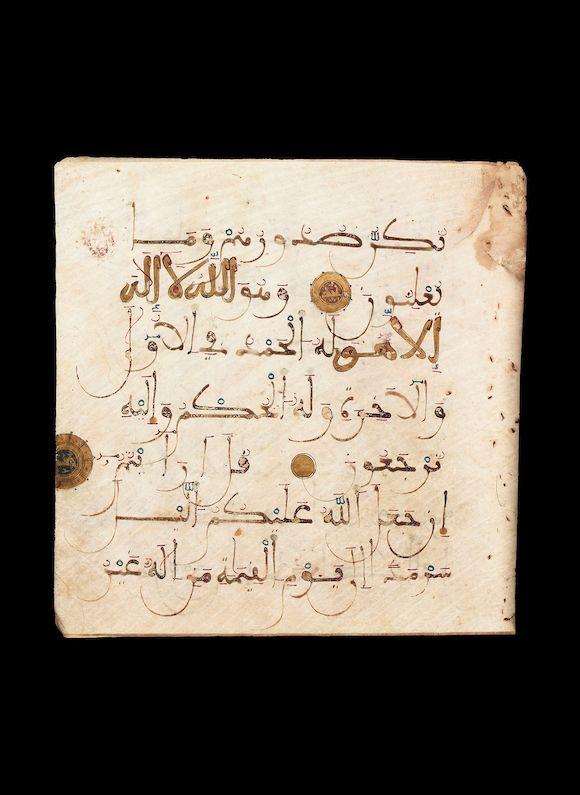 تكن صدورهم وما
يعلنون وهو الله لا إله
إلا هو له الحمد في الأولى
والآخرة وله الحكم وإليه
ترجعون قل أرايتم
إن جعل الله عليكم اليل
سرمدا إلى يوم القيمة من إله غير